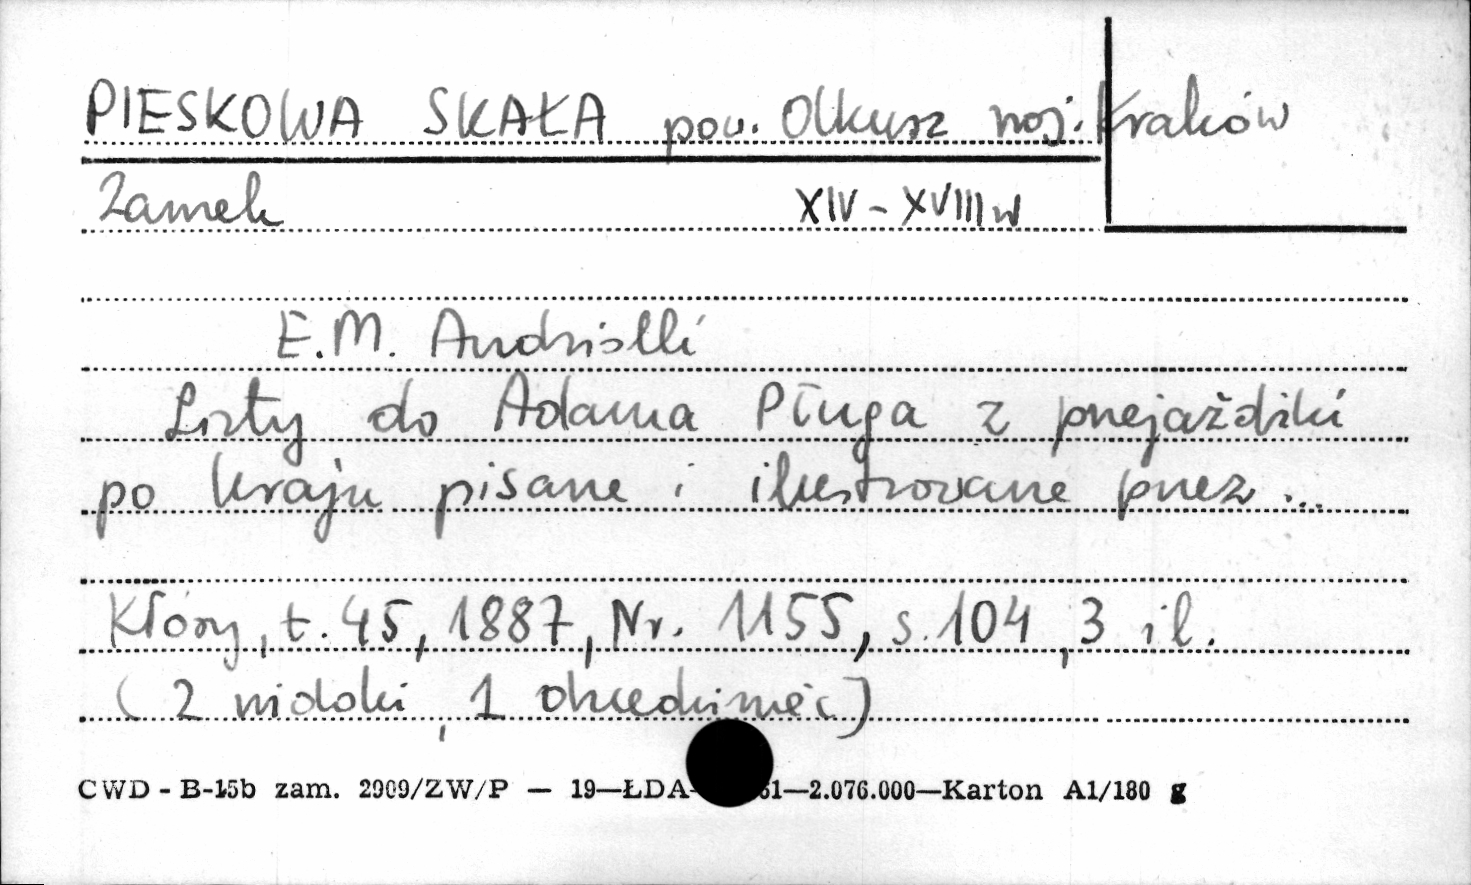 PIESKOWA SKAŁA pow. Olkusz woj. Kraków
Zamek XIV - XVIII w
E.M. Andriolli
Listy do Adama Pługa z przejażdżki
po kraju pisane i ilustrowane przez ...
Kłosy, t. 45, 1887, Nr. 1155, s. 104, 3 il.
( 2 widoki, 1 dziedziniec)
CWD - B-15b zam. 2909/ZW/P — 19—ŁDA- 61—2.076.000—Karton A1/180 g